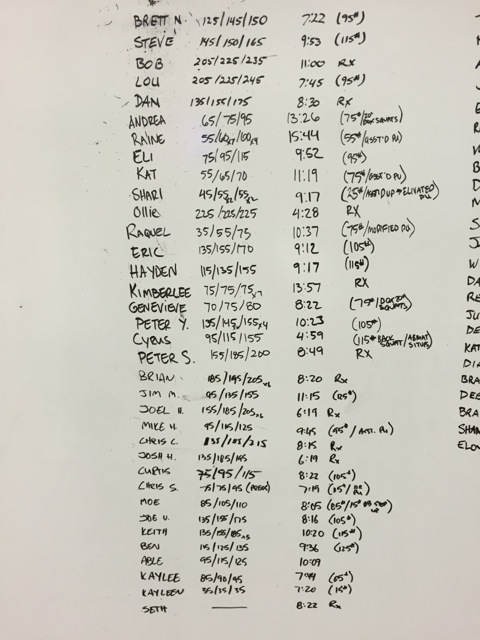 BRETT N. 125/145/150 7:22 (95#)
STEVE 145/150/165 9:53 (115#)
BOB 205/225/235 11:00 RX
LOU 205/225/245 7:45 (95#)
DAN 135/155/175 8:30 Rx
ANDREA 65/75/95 13:26 (75#/ BOX SQUATS)
RAINE 15:44 (55#/ASST'D PU)
ELI 75/95/115 9:52 (95#)
KAT 55/65/70 11:19 (75#/ASST'D PU)
SHARI 45/55x2/55x2 9:17 (25#/ASST'D UP + ELEVATED PU)
Ollie 225/225/225 4:28 RX
RAQUEL 35/55/75 10:37 (75#/MODIFIED PU)
ERIC 135/155/170 9:12 (105#)
HAYDEN 115/135/155 9:17 (115#)
KIMBERLEE 75/75/75x7 13:57 RX
GENEVIEVE 70/75/80 8:22 (75#/ SQUATS)
PETER Y. 135/145/155x4 10:23 (105#)
CYRUS 95/115/155 4:59 (115# BACK SQUAT/ABMAT SITUPS)
PETER S. 155/185/200 8:49 RX
BRIAN 185/195/205x6 8:20 Rx
JIM M. 95/135/155 11:15
JOEL H. 155/185/205x6 6:19 Rx
MIKE H. 95/115/125 9:45 (95#/ASST. PU)
CHRIS C. 8:15 Rx
JOSH H. 135/185/195 6:19 Rx
CURTIS 75/95/115 8:22 (105#)
CHRIS S. 75/75/95 7:19
MOE 85/105/110 8:05
JOE V. 135/155/175 8:16 (105#)
KEITH 135/155/185x5 10:20 (115#)
BEN 115/125/135 9:36 (125#)
ABLE 95/115/125 10:09
KAYLEE 85/90/95 (65#)
KAYLEEN 35/35/35 7:20 (15#)
SETH —— 8:22 Rx